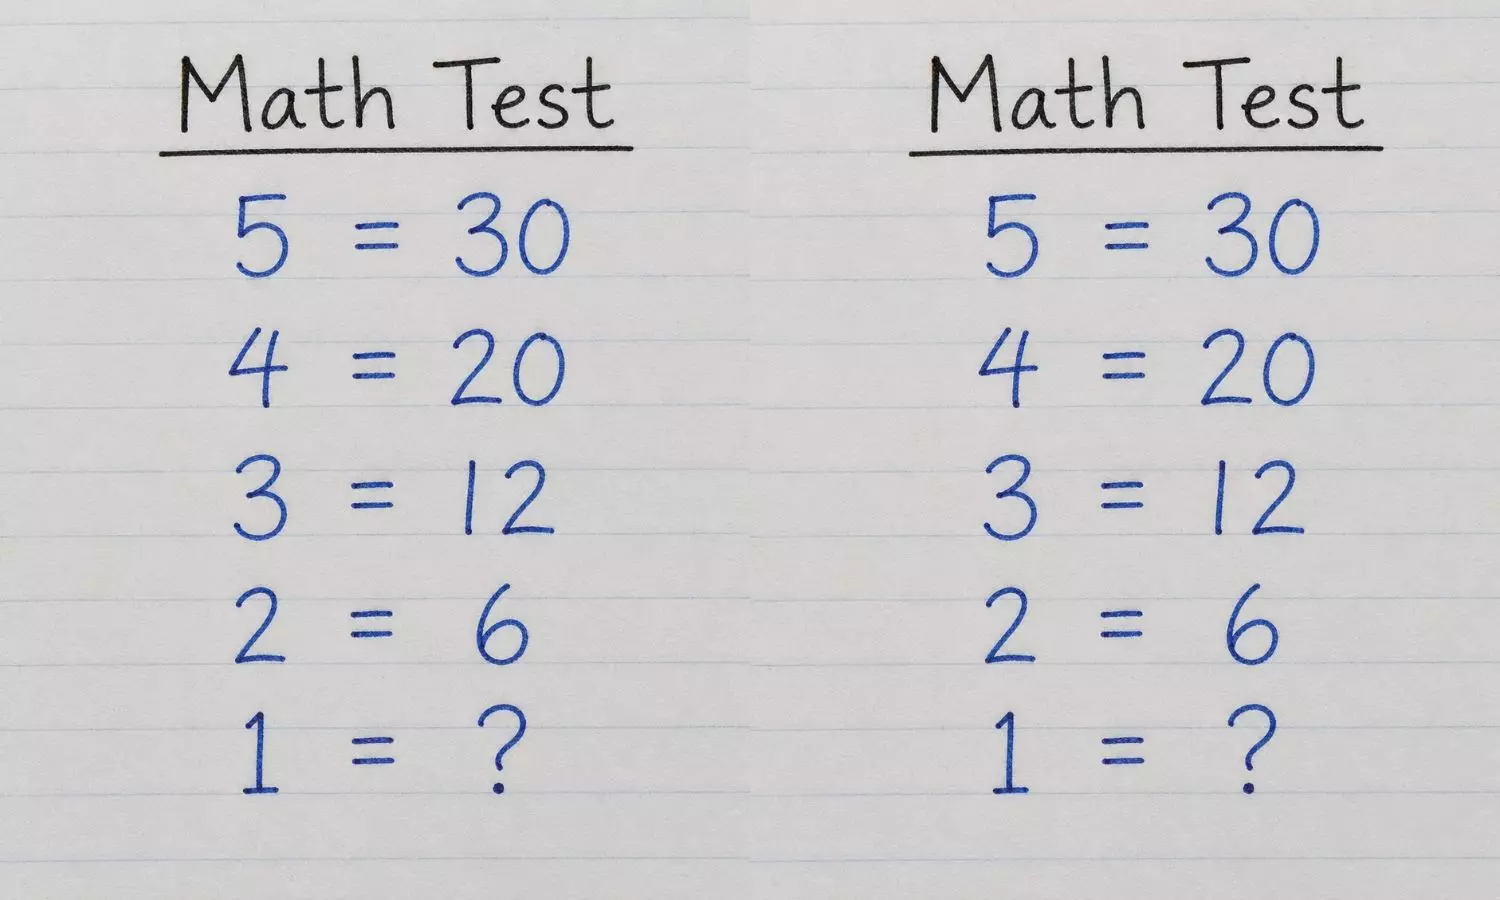 Math Test
5 = 30
4 = 20
3 = 12
2 = 6
1 = ?
Math Test
5 = 30
4 = 20
3 = 12
2 = 6
1 = ?